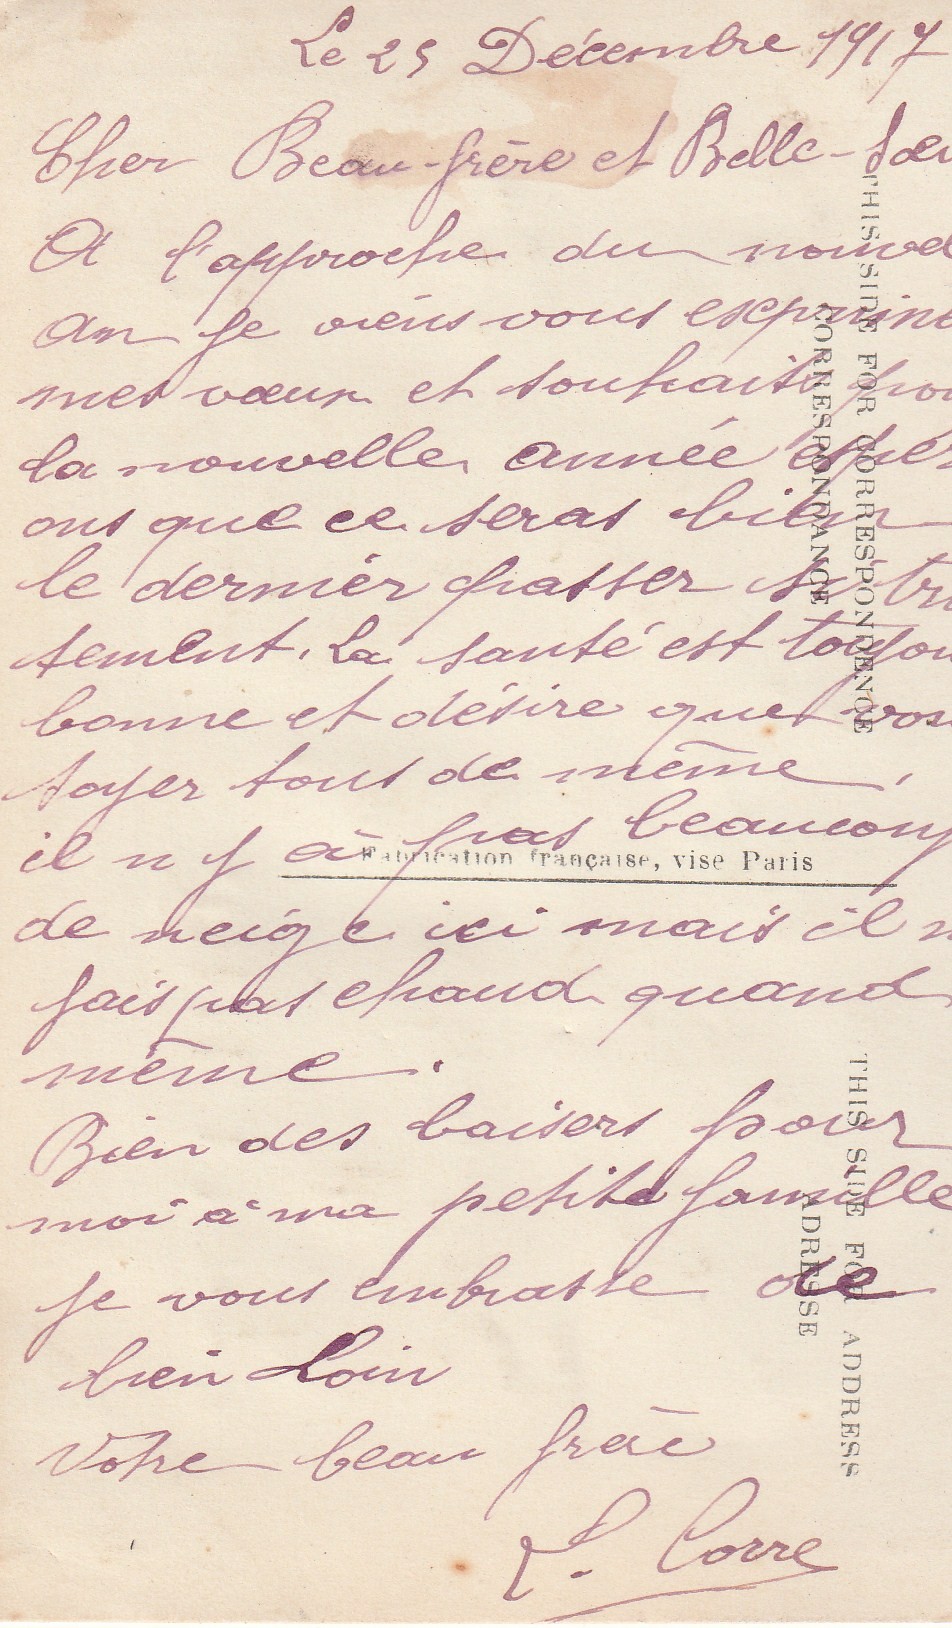 Le 25 Décembre 1917
Cher Beau-frère et Belle-Sœu
A l'approche du nouvel
an je viens vous exprime
mes vœux et souhaits pou
la nouvelle année espér
ons que ce seras bien
le dernier passer si tri
tement. La santé est toujou
bonne et désire que vou
soyer tous de même,
il n y à pas beaucoup
de neige ici mais il n
fais pas chaud quand
même.
Bien des baisers pour
moi à ma petite famille
je vous embrasse de
bien Loin
Votre beau frère
L. Corre
Fabrication française, vise Paris
THIS SIDE FOR CORRESPONDENCE
CORRESPONDANCE
THIS SIDE FOR ADDRESS
ADRESSE